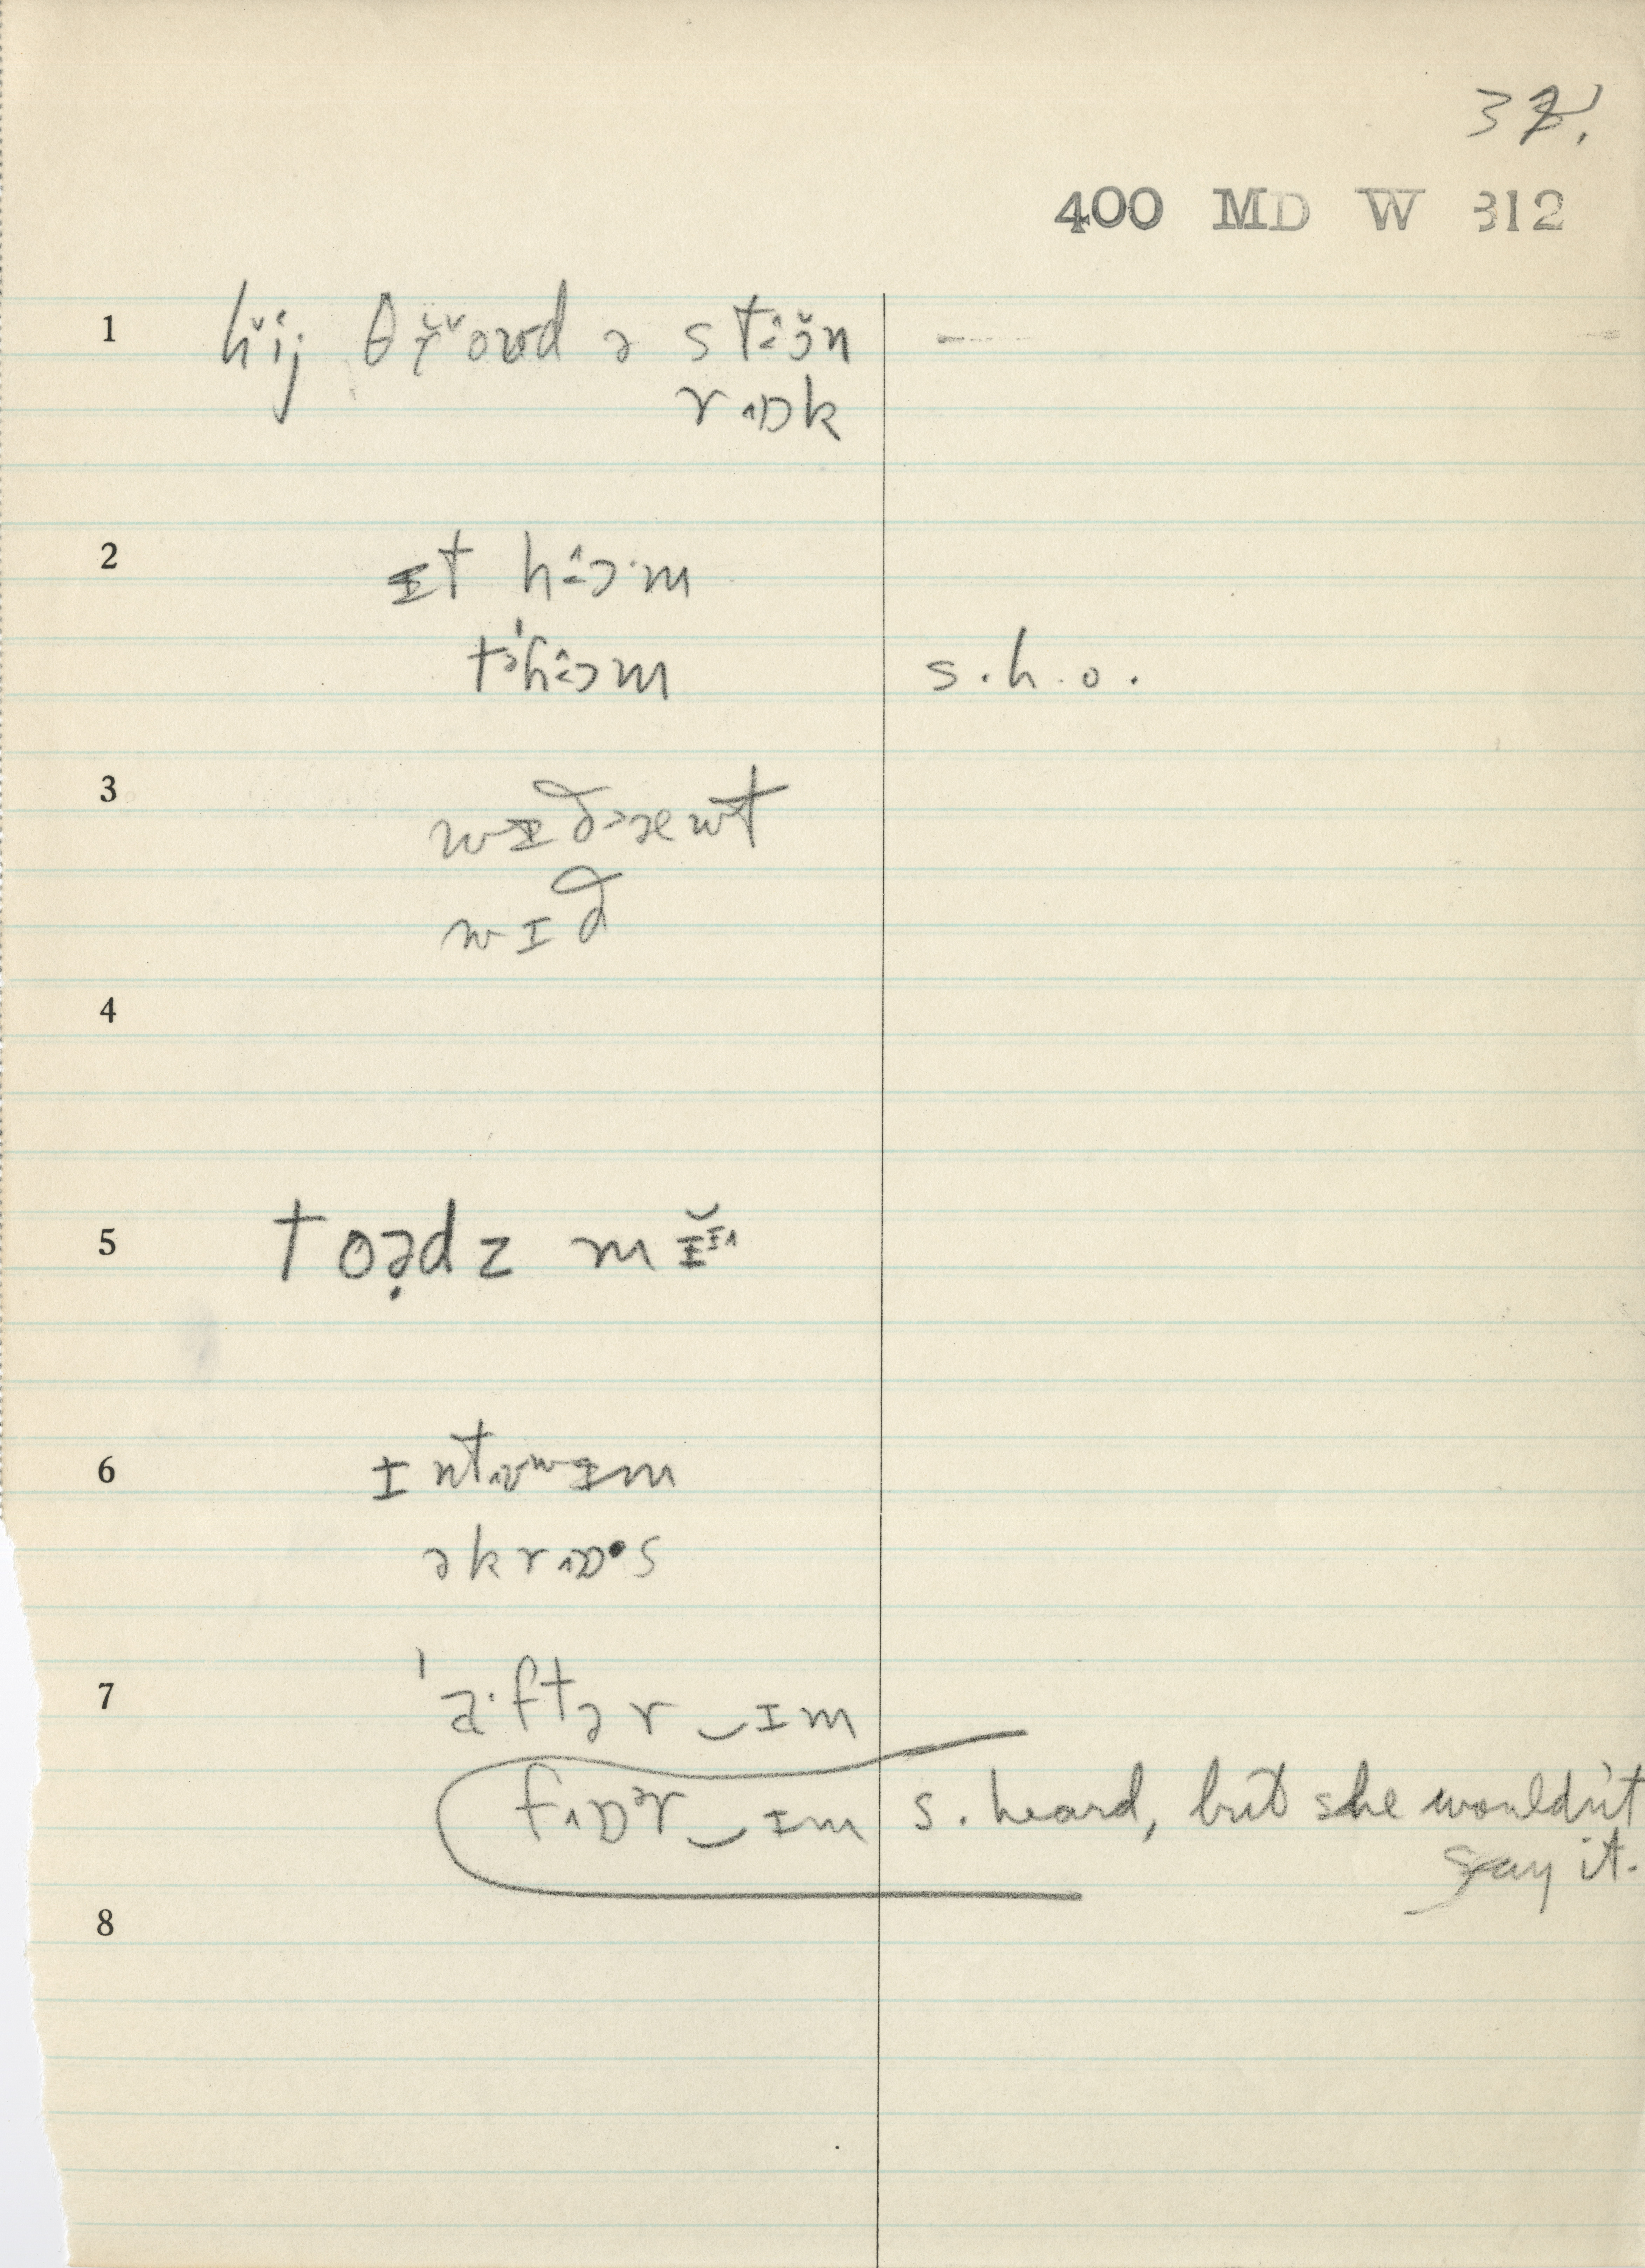 32.
400 MD W 312
1 hĭj θɤ̆ow̆d ə stɔn —
rɒk
2 ɪt hɔ·m
tə'hɔm s.h.o.
3 wɪðəæwt
wɪð
4
5 toə̣dz mɪ̆ɪ
6 ɪntʊwɪm
əkrɒ•s
7 'a·ftər‿ɪm
fɒᵊr‿ɪm s. heard, but she wouldn't
say it.
8